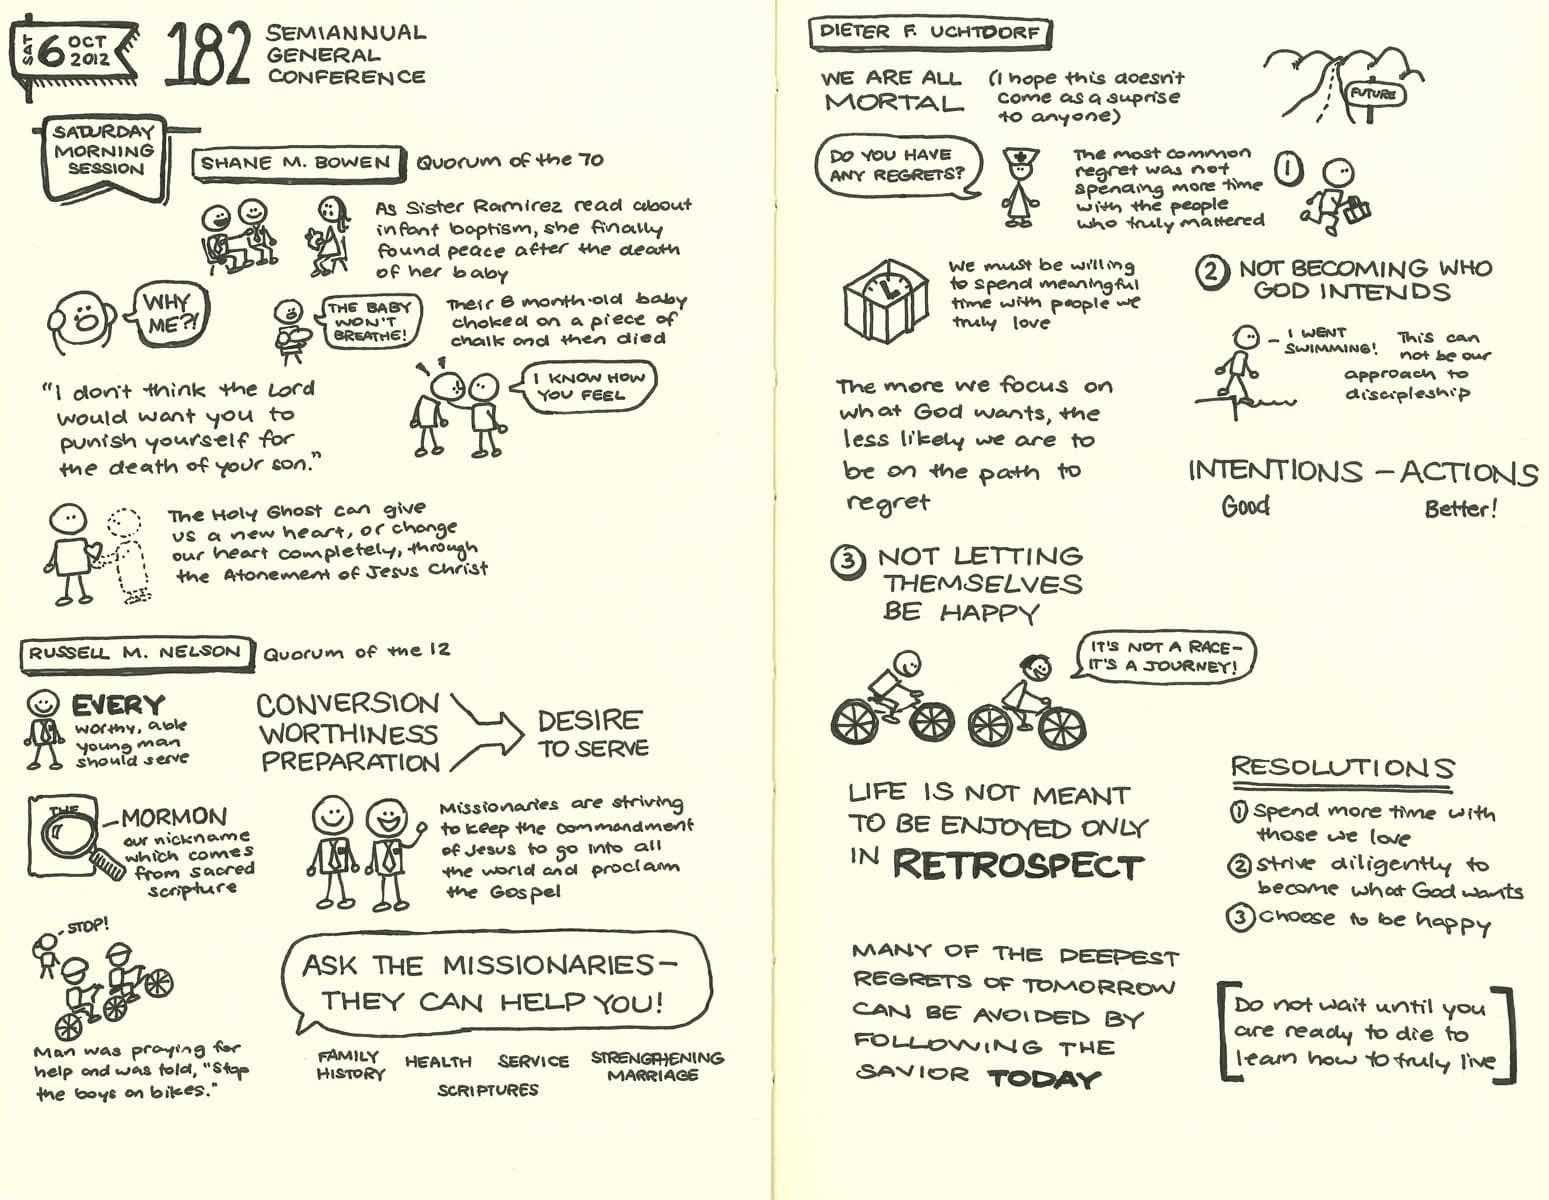 SAT
6 OCT
2012
182
SEMIANNUAL
GENERAL
CONFERENCE
SATURDAY
MORNING
SESSION
SHANE M. BOWEN
Quorum of the 70
As Sister Ramirez read about
infant baptism, she finally
found peace after the death
of her baby
WHY
ME?!
THE BABY
WON'T
BREATHE!
Their 8 month-old baby
choked on a piece of
chalk and then died
"I don't think the Lord
would want you to
punish yourself for
the death of your son."
I KNOW HOW
YOU FEEL
The Holy Ghost can give
us a new heart, or change
our heart completely, through
the Atonement of Jesus Christ
RUSSELL M. NELSON
Quorum of the 12
EVERY
worthy, able
young man
should serve
CONVERSION
WORTHINESS
PREPARATION
DESIRE
TO SERVE
THE
MORMON
our nickname
which comes
from sacred
scripture
Missionaries are striving
to keep the commandment
of Jesus to go into all
the world and proclaim
the Gospel
STOP!
Man was praying for
help and was told, "Stop
the boys on bikes."
ASK THE MISSIONARIES—
THEY CAN HELP YOU!
FAMILY
HISTORY
HEALTH
SERVICE
STRENGTHENING
MARRIAGE
SCRIPTURES
DIETER F. UCHTDORF
WE ARE ALL
MORTAL
(I hope this doesn't
come as a suprise
to anyone)
FUTURE
DO YOU HAVE
ANY REGRETS?
The most common
regret was not
spending more time
with the people
who truly mattered
1
We must be willing
to spend meaningful
time with people we
truly love
2 NOT BECOMING WHO
GOD INTENDS
I WENT
SWIMMING!
This can
not be our
approach to
discipleship
The more we focus on
what God wants, the
less likely we are to
be on the path to
regret
INTENTIONS — ACTIONS
Good Better!
3 NOT LETTING
THEMSELVES
BE HAPPY
IT'S NOT A RACE—
IT'S A JOURNEY!
LIFE IS NOT MEANT
TO BE ENJOYED ONLY
IN RETROSPECT
RESOLUTIONS
1 Spend more time with
those we love
2 Strive diligently to
become what God wants
3 Choose to be happy
MANY OF THE DEEPEST
REGRETS OF TOMORROW
CAN BE AVOIDED BY
FOLLOWING THE
SAVIOR TODAY
[Do not wait until you
are ready to die to
learn how to truly live]